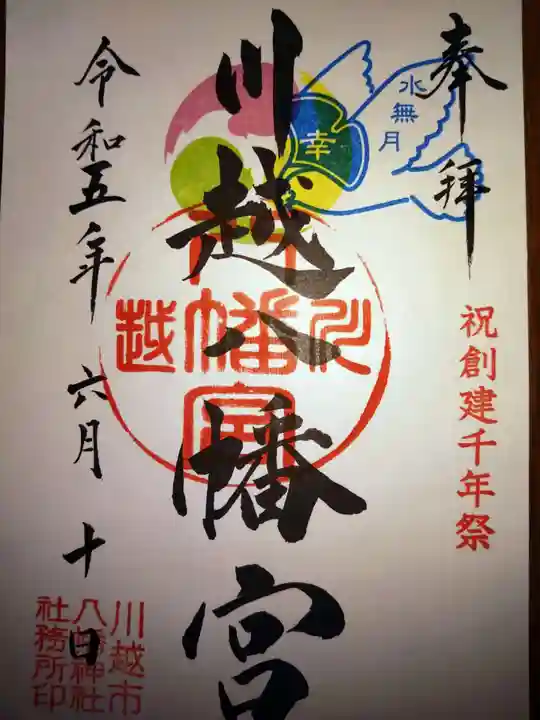 奉拝
祝創建千年祭
水無月
幸
川越八幡宮
川越
八幡宮
令和五年 六月 十日
川越市
八幡神社
社務所印